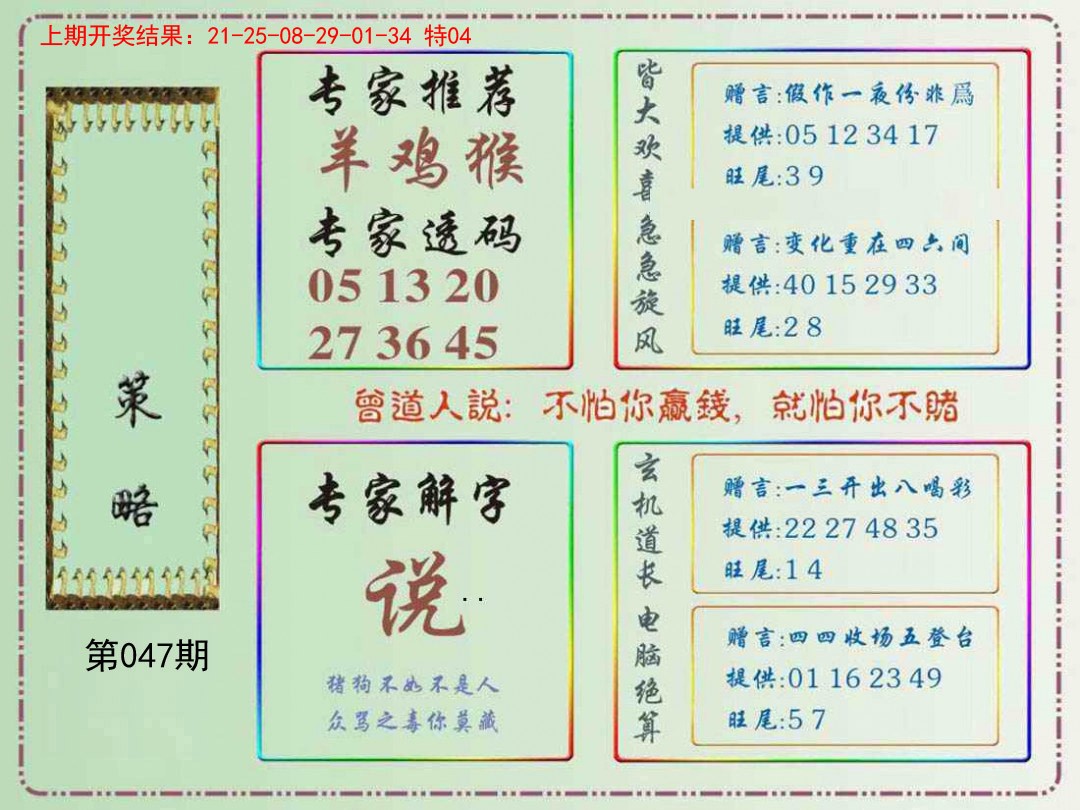 上期开奖结果：21-25-08-29-01-34 特04
策略
第047期
专家推荐
羊鸡猴
专家透码
05 13 20
27 36 45
皆大欢喜
赠言:假作一夜份非爲
提供:05 12 34 17
旺尾:3 9
急急旋风
赠言:变化重在四六间
提供:40 15 29 33
旺尾:2 8
曾道人説: 不怕你贏錢, 就怕你不賭
专家解字
说..
猪狗不如不是人
众骂之毒你莫藏
玄机道长
赠言:一三开出八喝彩
提供:22 27 48 35
旺尾:1 4
电脑绝算
赠言:四四收场五登台
提供:01 16 23 49
旺尾:5 7